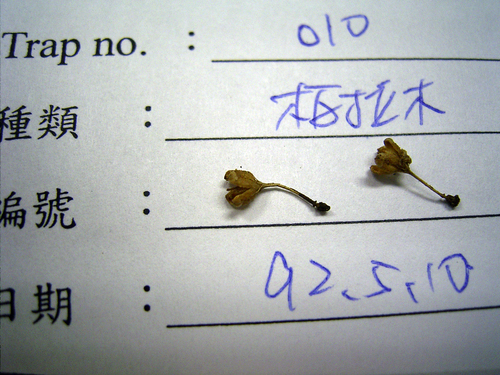 Trap no. : 010
種類 : 板拉木
編號 :
日期 : 92.5.10